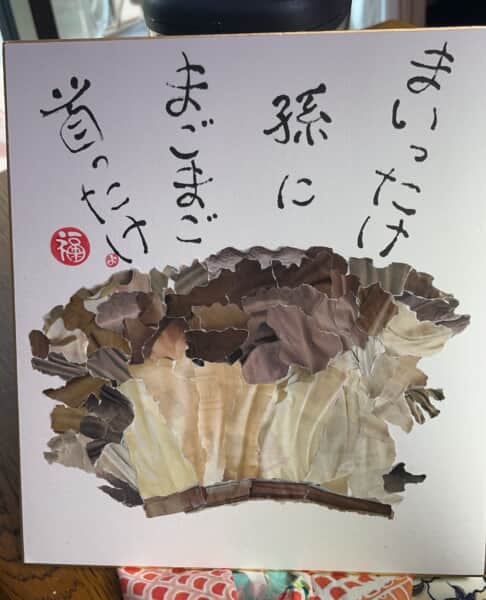 まいったけ
孫に
まごまご
首ったけ
福